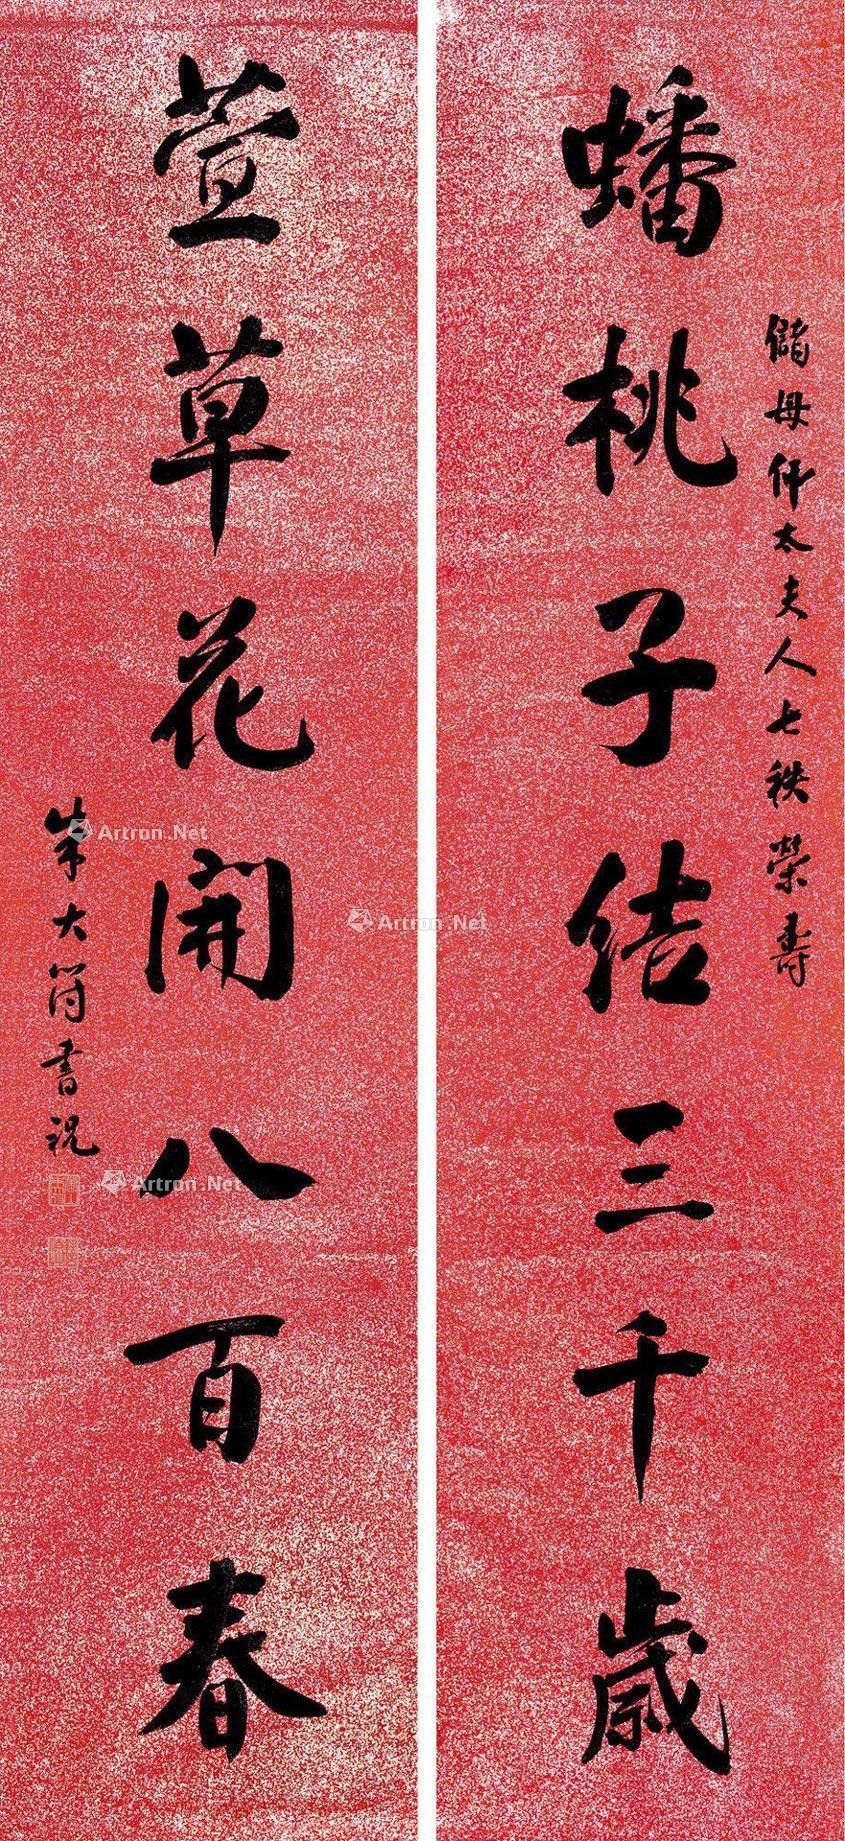 儲母太夫人七秩榮壽
蟠桃子結三千歲
萱草花開八百春
大符書祝
Artron.Net
Artron.Net
Artron.Net